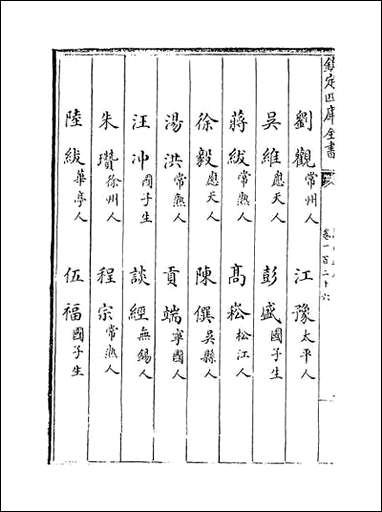 欽定四庫全書
卷一百二十六
劉觀常州人　江豫太平人
吳維應天人　彭盛國子生
蔣紱常熟人　高崧松江人
徐毅應天人　陳僎吳縣人
湯洪常熟人　貢端寧國人
汪沖國子生　談經無錫人
朱瓚徐州人　程宗常熟人
陸紱華亭人　伍福國子生